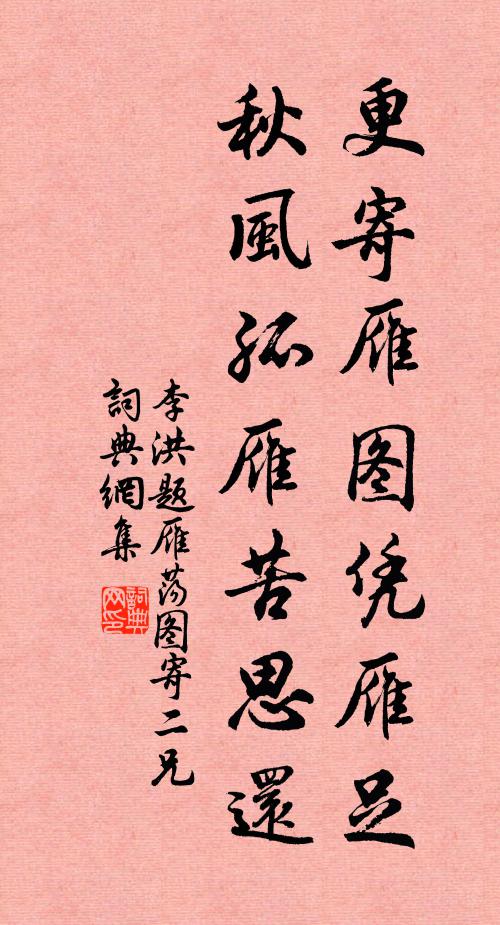 更寄雁图凭雁足
秋風孤雁苦思還
李洪题雁荡图寄二兄
詞典網集
詞典网印